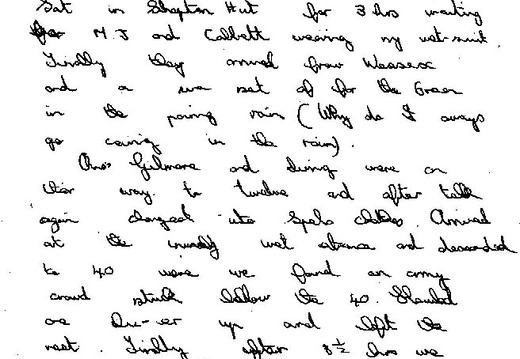 Sat in Shepton Hut for 3 hrs waiting
for M J and Cobbett wearing my wet-suit.
Finally they arrived from Wessex
and a we set off for the Green
in the pouring rain (Why do I always
go caving in the rain).
Gilmore and were on
their way to twelve and after talk
again changed into Spelo clothes. Arrived
at the wet entrance and descended
to 40 where we found an army
crowd stuck below the 40. Shouted
one up and left the
rest. Finally after 3½ hrs we